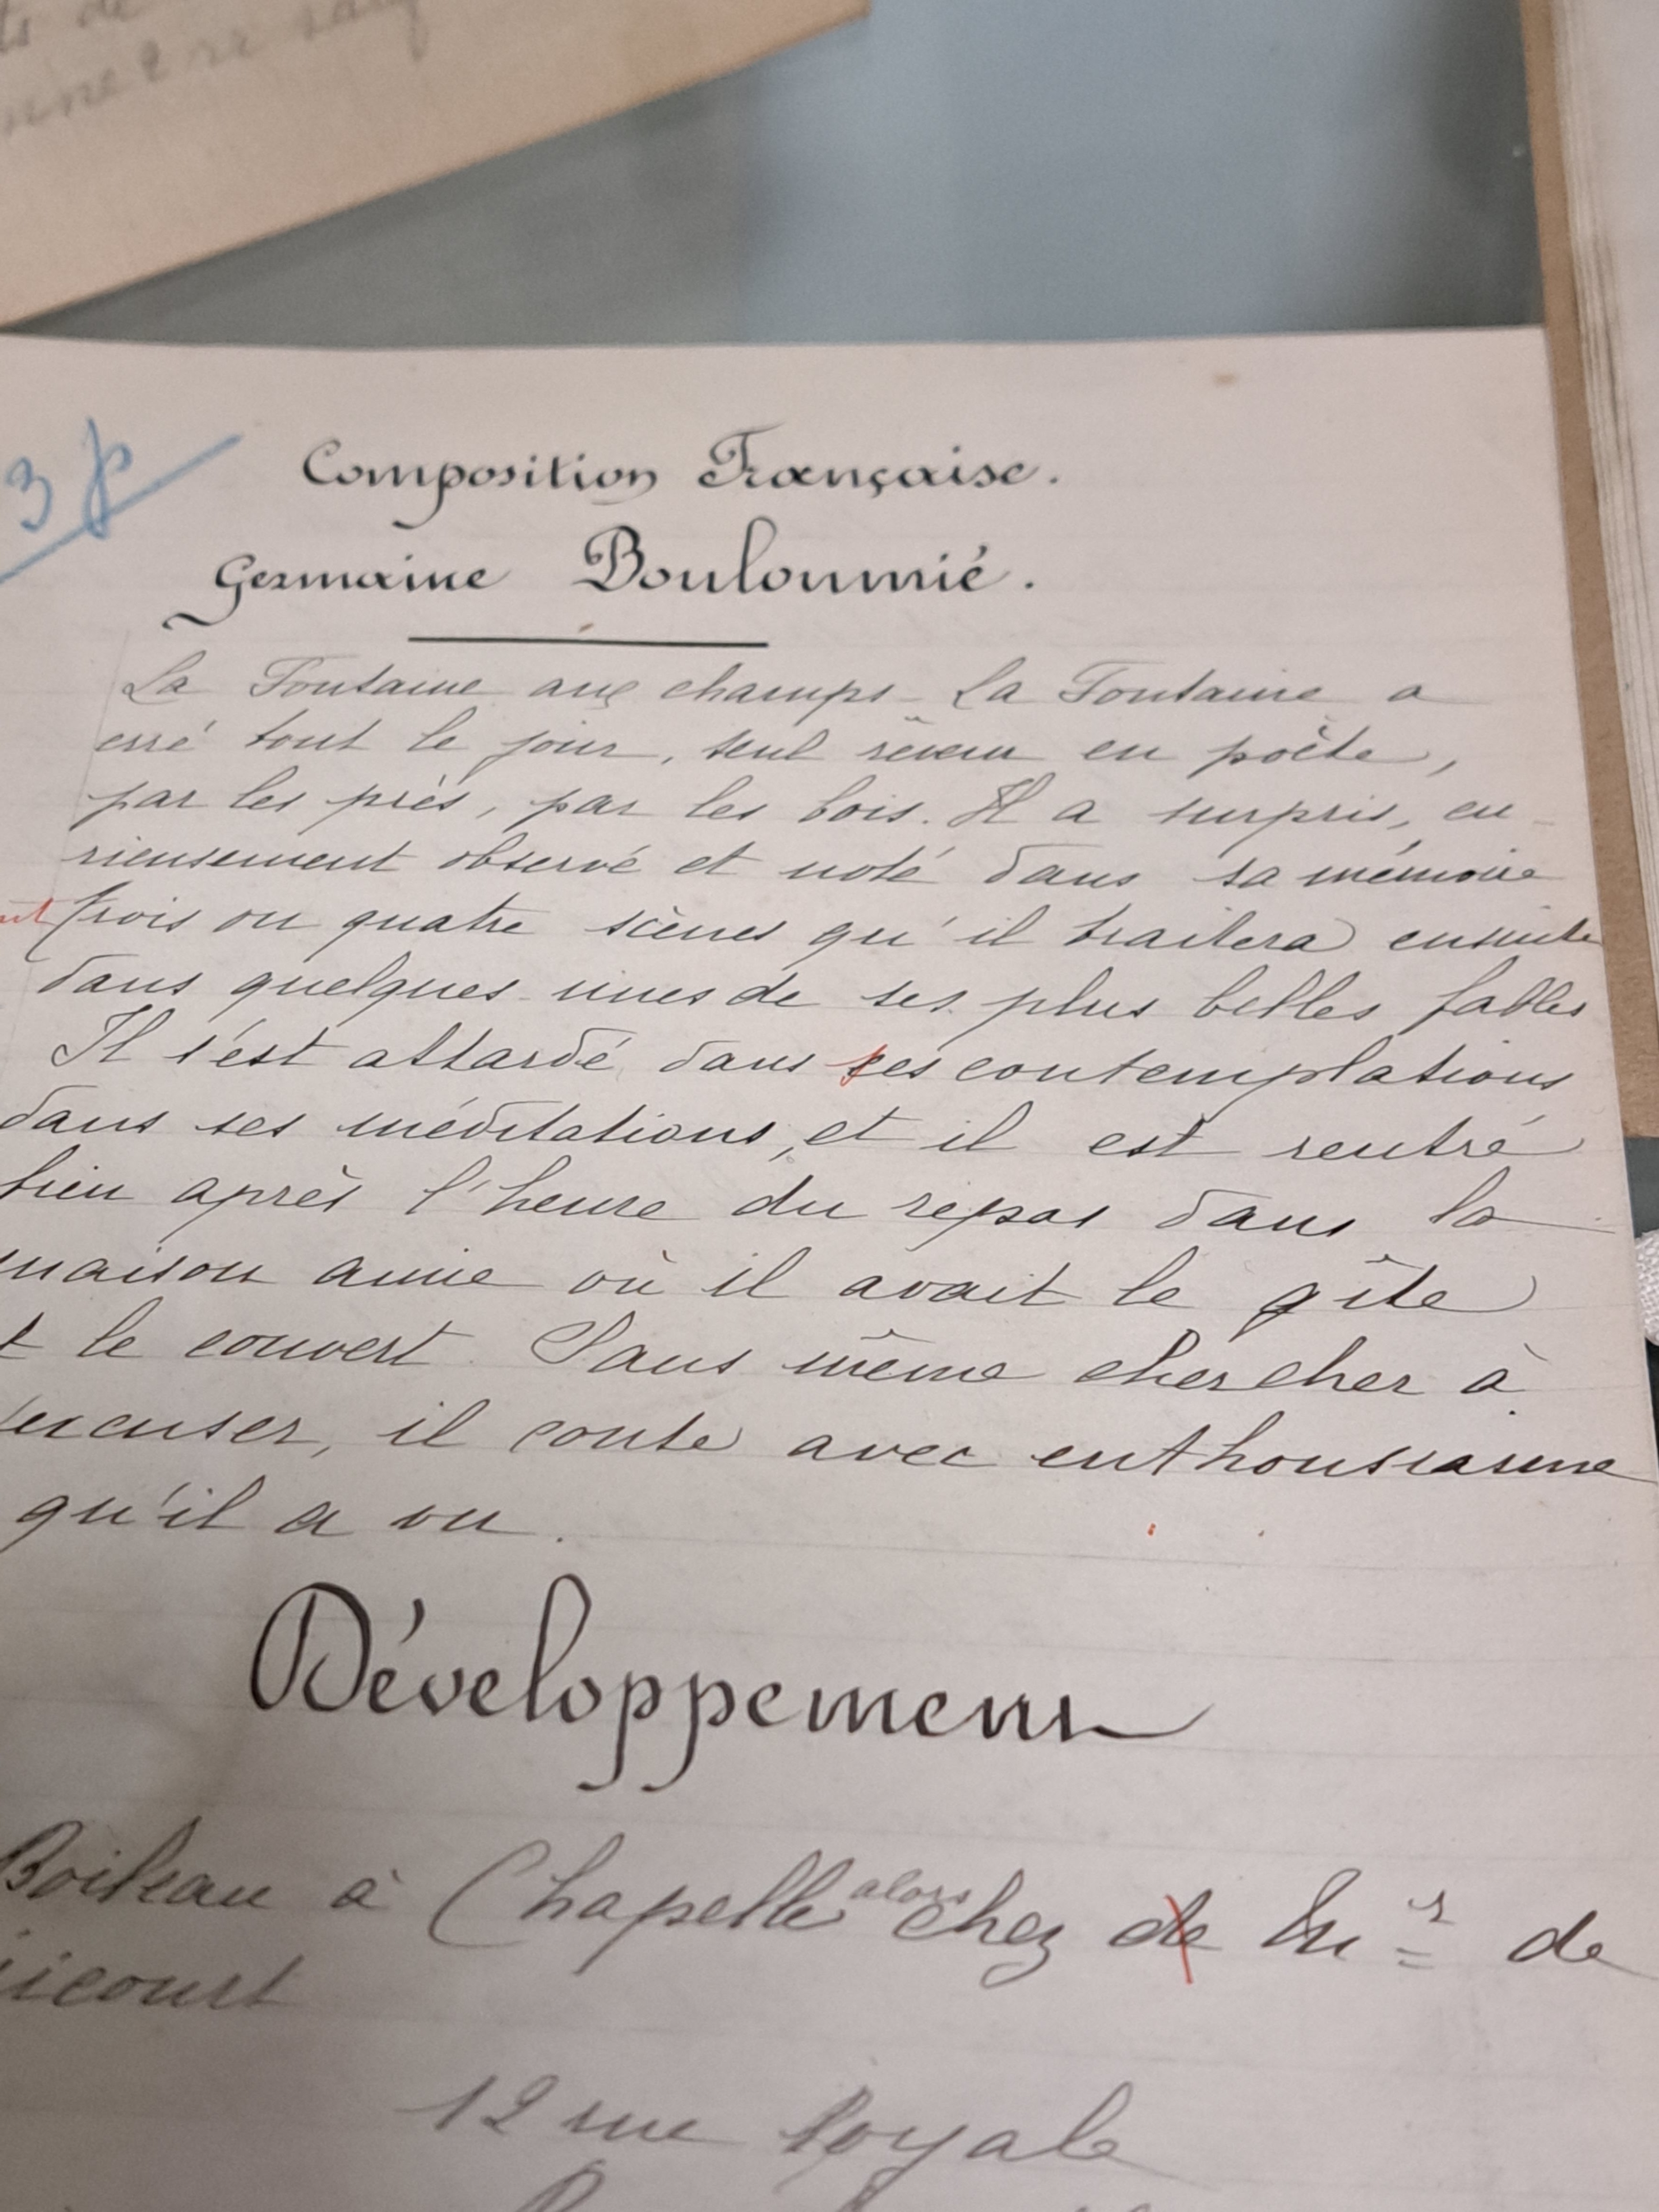 3 p
Composition Française.
Germaine Bouloumié.
La Fontaine aux champs - La Fontaine a
erré tout le jour, seul rêveur en poète,
par les près, par les bois. Il a surpris, cu-
rieusement observé et noté dans sa mémoire
trois ou quatre scènes qu'il traitera ensuite
dans quelques-unes de ses plus belles fables
Il s'est attardé dans ses contemplations
dans ses méditations, et il est rentré
bien après l'heure du repas dans la
maison amie où il avait le gîte
t le couvert. Sans même chercher à
excuser, il conte avec enthousiasme
qu'il a vu.
Développement
Boileau à Chapelle alors chez de Mr de
icourt
12 rue Royale